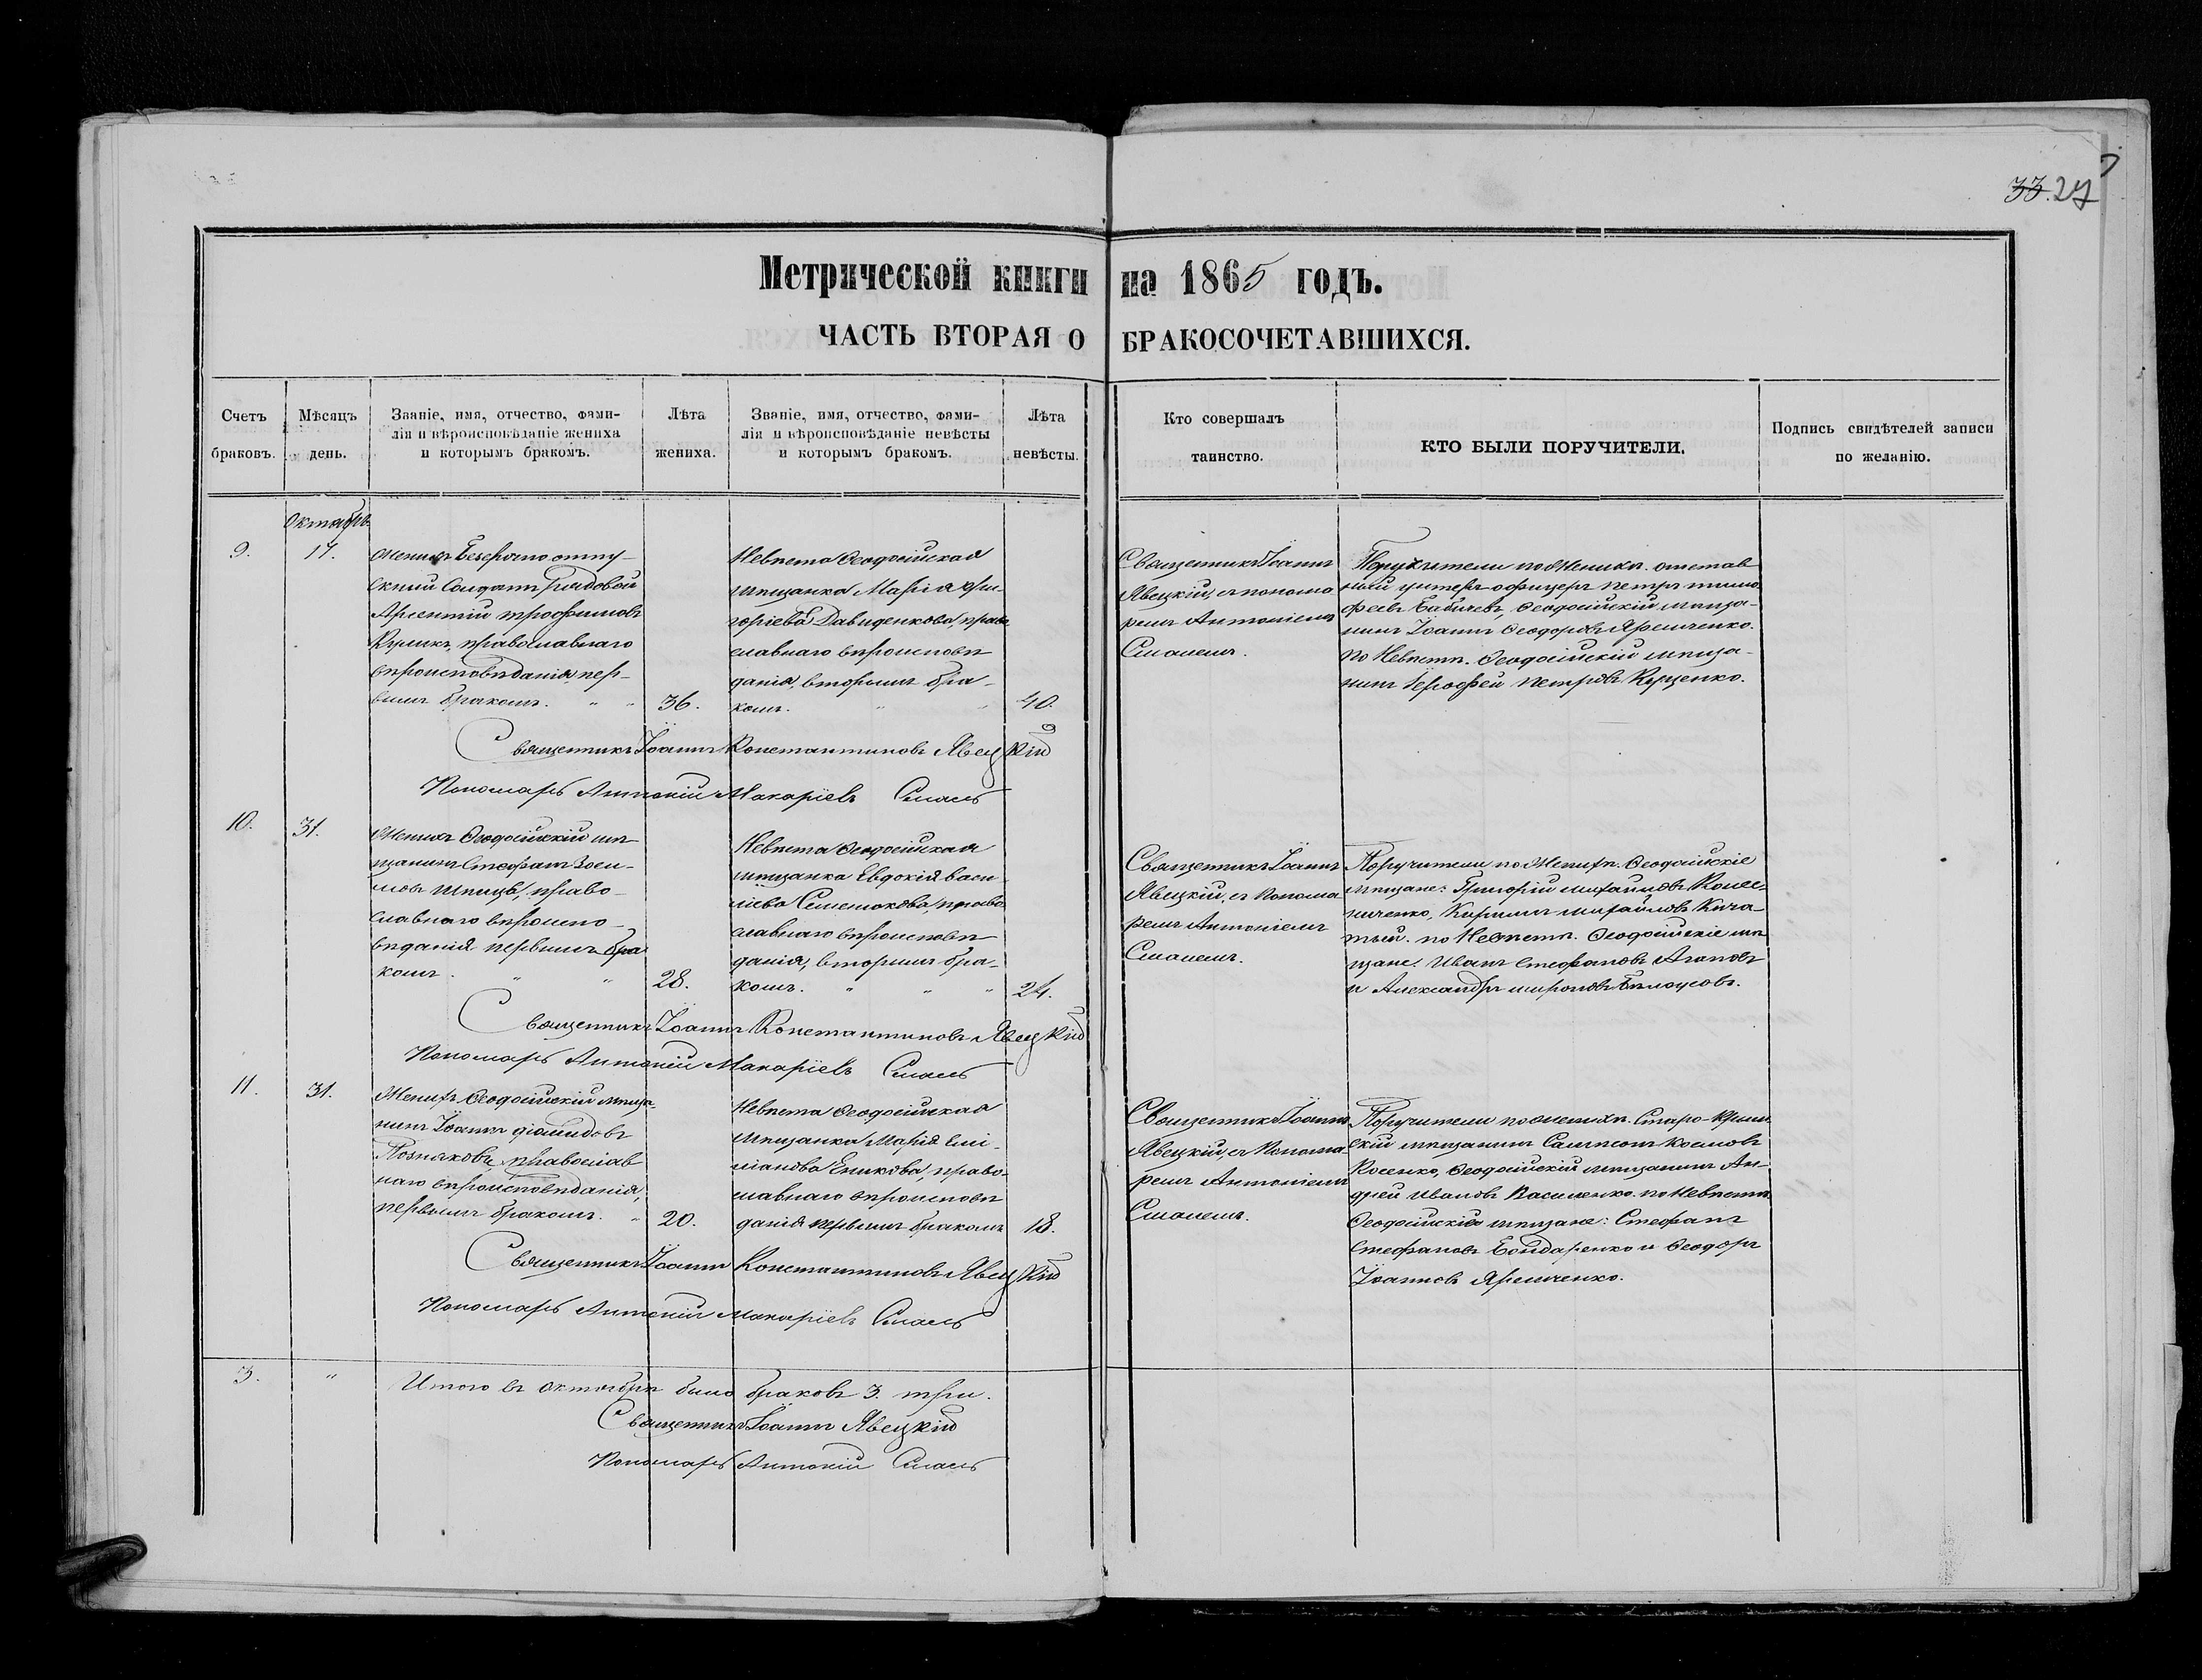 33. 27
Метрической книги на 1865 годъ.
ЧАСТЬ ВТОРАЯ О БРАКОСОЧЕТАВШИХСЯ.
Счетъ браковъ.
Мѣсяцъ день.
Званіе, имя, отчество, фами-
лія и вѣроисповѣданіе жениха
и которымъ бракомъ.
Лѣта
жениха.
Званіе, имя, отчество, фами-
лія и вѣроисповѣданіе невѣсты
и которымъ бракомъ.
Лѣта
невѣсты.
Кто совершалъ
таинство.
КТО БЫЛИ ПОРУЧИТЕЛИ.
Подпись свидѣтелей записи
по желанію.
Октябрь
9.
17.
Женихъ Безсрочно отпу-
скний Солдатъ Рядовой
Арсентій трофимовъ
Куликъ, православнаго
вѣроисповѣданія, пер-
вымъ бракомъ. " "
36.
Невѣста Ѳеодосійская
мѣщанка Марія Гри-
горіева Давиденкова, право
славнаго вѣроисповѣ
данія, вторымъ бра-
комъ. " "
40.
Священникъ Іоаннъ
Явецкій, съ понома
ремъ Антоніемъ
Смалемъ.
Поручители по Женихѣ. отстав
ный унтеръ-офицеръ петръ тимо
феевъ Бабичевъ, Ѳеодосійскій мѣща-
нинъ Іоаннъ Ѳеодоровъ Яремченко.
по Невѣстѣ. Ѳеодосійскій мѣща-
нинъ Іерофей петровъ Куценко.
Священникъ Іоаннъ Константиновъ Явецкій
Пономарь Антоній Макаріевъ Смаль
10.
31.
Женихъ Ѳеодосійскій мѣ
щанинъ Стефанъ Зоси-
мовъ Шпицъ, право-
славнаго вѣроиспо-
вѣданія первымъ бра
комъ. " "
28.
Невѣста Ѳеодосійская
мѣщанка Евдокія васи
ліева Семенюкова, право
славнаго вѣроисповѣ
данія, вторымъ бра-
комъ. " " "
24.
Священникъ Іоаннъ
Явецкій, съ Понома
ремъ Антоніемъ
Смалемъ.
Поручители по Женихѣ. Ѳеодосійскіе
мѣщане: Григорій михайловъ
Кирилъ михайловъ
по Невѣстѣ. Ѳеодосійскіе мѣ
щане. Иванъ Стефановъ Агаповъ
и Александръ мироновъ Бѣлоусовъ.
Священникъ Іоаннъ Константиновъ Явецкій
Пономарь Антоній Макаріевъ Смаль
11.
31.
Женихъ Ѳеодосійскій мѣща-
нинъ Іоаннъ діомидовъ
Позняковъ, православ
наго вѣроисповѣданія,
первымъ бракомъ. "
20.
Невѣста Ѳеодосійская
мѣщанка Марія Емі-
ліанова Еникова, право-
славнаго вѣроисповѣ
данія первымъ бракомъ
18.
Священникъ Іоаннъ
Явецкій, съ Понома-
ремъ Антоніемъ
Смалемъ.
Поручители по женихѣ. Старо-Крым
скій мѣщанинъ Сампсонъ космовъ
Косенко, Ѳеодосійскій мѣщанинъ Ан-
дрей Ивановъ Василенко. по Невѣстѣ.
Ѳеодосійскіе мѣщане: Стефанъ
Стефановъ Бондаренко и Ѳеодоръ
Іоанновъ Яремченко.
Священникъ Іоаннъ Константиновъ Явецкій
Пономарь Антоній Макаріевъ Смаль
3.
"
Итого въ октябрѣ было браковъ 3. три.
Священникъ Іоаннъ Явецкій
Пономарь Антоній Смаль